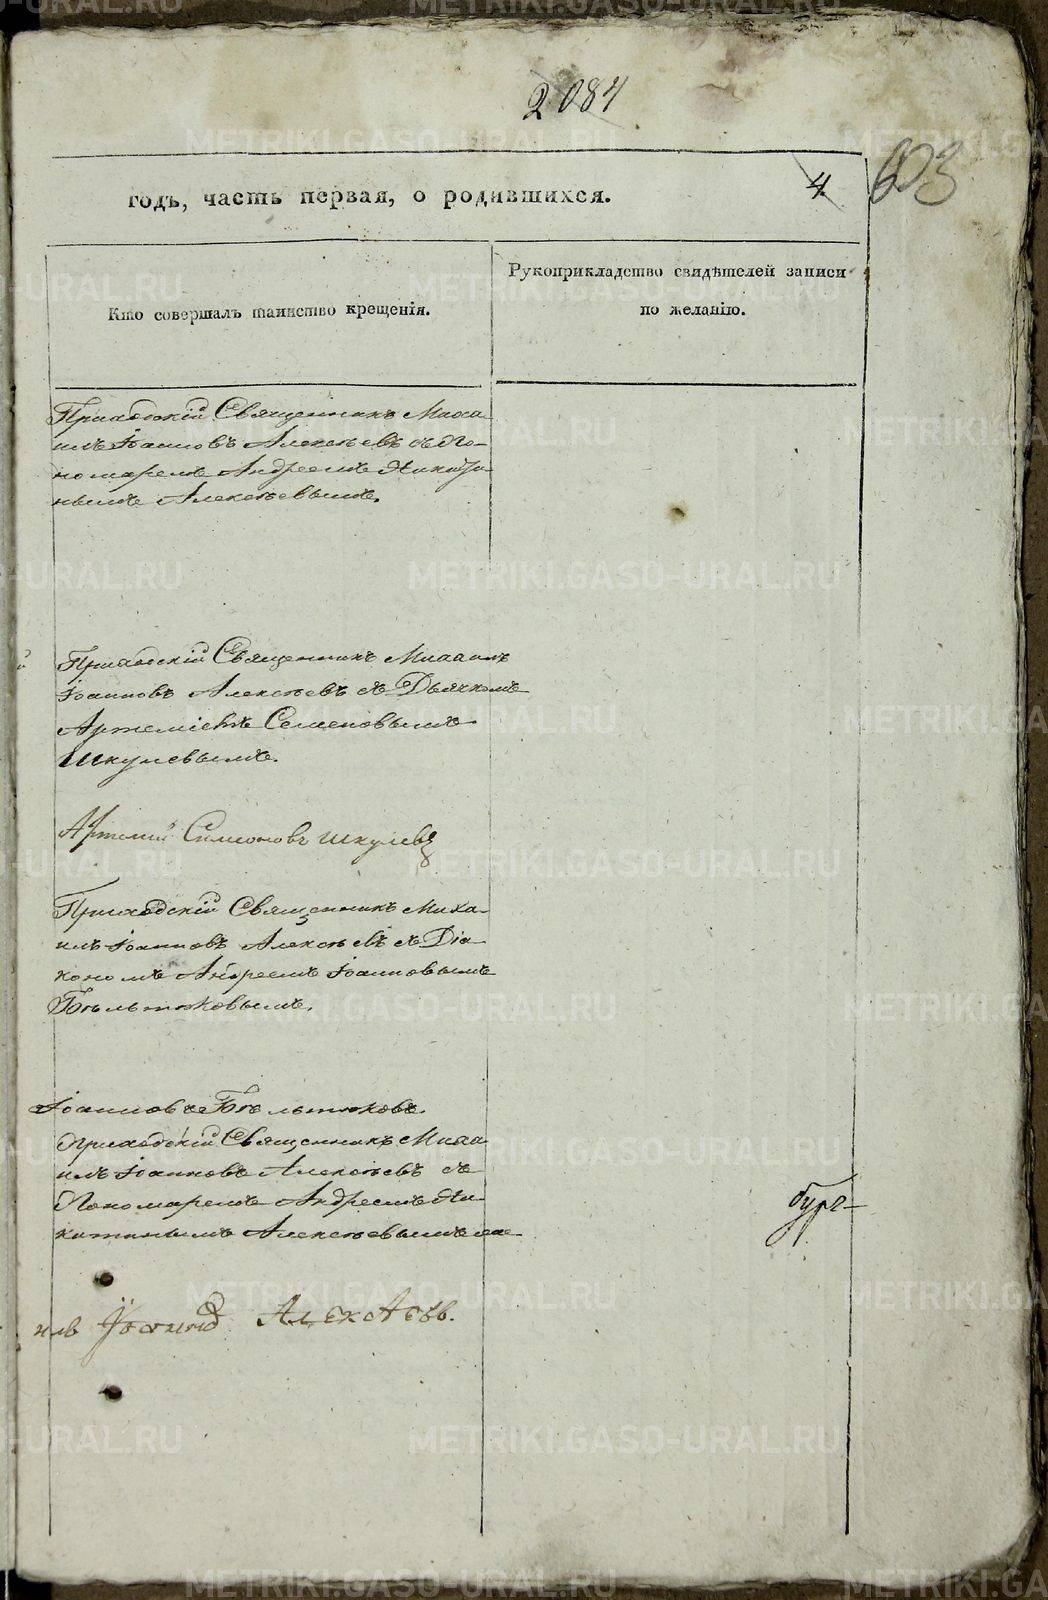 2084
603
годъ, часть первая, о родившихся.
4
Кто совершалъ таинство крещенія.
Рукоприкладство свидѣтелей записи
по желанію.
Приходскій Священникъ Миха
илъ Іоанновъ Алексѣевъ съ По-
номаремъ Андреемъ Никити
нымъ Алексѣевымъ.
Приходскій Священникъ Михаилъ
Іоанновъ Алексѣевъ съ Дьячкомъ
Артеміемъ Семеновымъ
Шкулевымъ.
Артемий Симеоновъ Шкулевъ
Приходскій Священникъ Миха-
илъ Іоанновъ Алексѣевъ съ Діа
кономъ Андреемъ Іоанновымъ
Бѣльтюковымъ.
Іоанновъ Бѣльтюковъ
Приходскій Священникъ Миха
илъ Іоанновъ Алексѣевъ съ
Пономаремъ Андреемъ Ни-
китинымъ Алексѣевымъ
бург-
илъ Іоанновъ Алексѣевъ.
METRIKI.GASO-URAL.RU